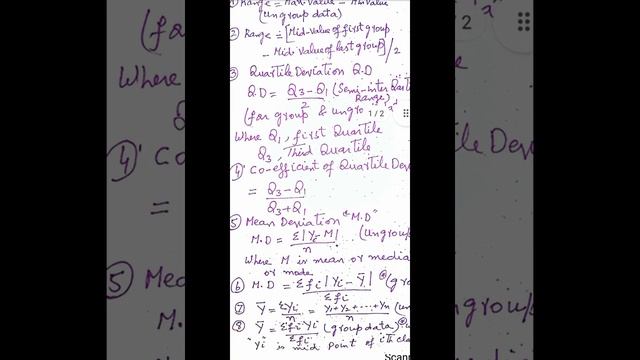 ① Range = Max. Value - Min Value
(Ungroup data)
② Range = [Mid-Value of first group
- Mid-Value of last group]/2
③ Quartile Deviation Q.D
Q.D = Q3-Q1/2 (Semi-inter
Range)
(for group & ungro
1/2
Where Q1, first Quartile
Q3, Third Quartile
④ Co-efficient of Quartile Dev
= Q3-Q1/Q3+Q1
⑤ Mean Deviation "M.D"
M.D = Σ|Yi-M|/n ... (Ungroup
Where M is mean or media
or mode
⑥ M.D = Σfi|Yi-Ȳ|/Σfi (g
⑦ Ȳ = ΣYi/n = Y1+Y2+...+Yn/n (un
⑧ Ȳ = ΣfiYi/Σfi (group data)
"Yi" is mid point of ith cla
Scann